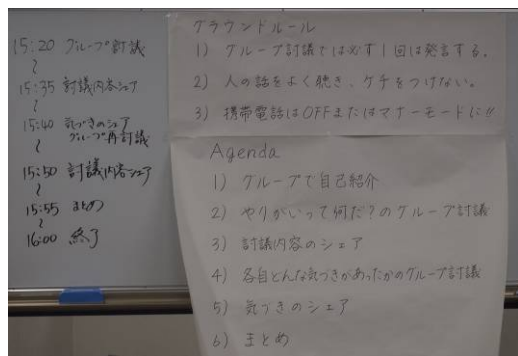 15:20 グループ討議
〜
15:35 討議内容シェア
〜
15:40 気づきのシェア
グループ再討議
〜
15:50 討議内容シェア
〜
15:55 まとめ
〜
16:00 終了
グラウンドルール
1) グループ討議では必ず1回は発言する。
2) 人の話をよく聴き、ケチをつけない。
3) 携帯電話はOFFまたはマナーモードに!!
Agenda
1) グループで自己紹介
2) やりがいって何だ?のグループ討議
3) 討議内容のシェア
4) 各自どんな気づきがあったかのグループ討議
5) 気づきのシェア
6) まとめ